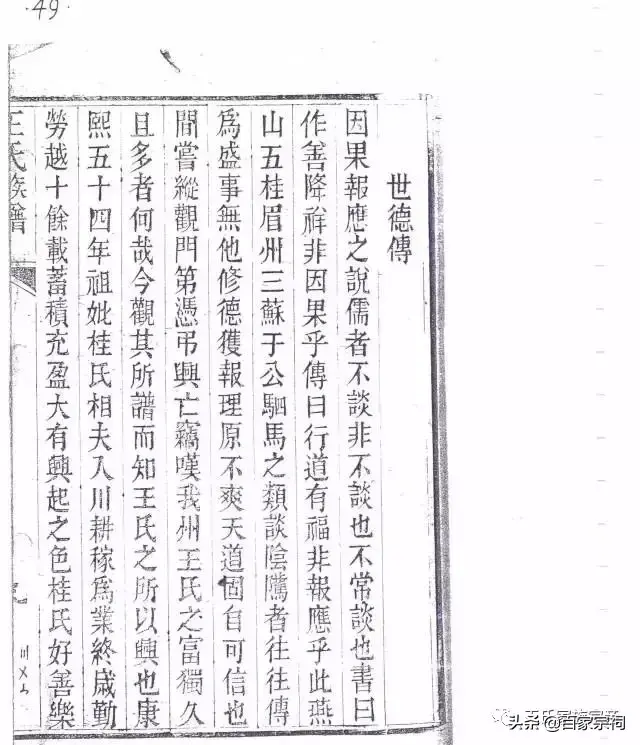 ·49·
世德傳
因果報應之說儒者不談非不談也不常談也書曰
作善降祥非因果乎傳曰行道有福非報應乎此燕
山五桂眉州三蘇于公駟馬之類談陰隲者往往傳
為盛事無他修德獲報理原不爽天道固自可信也
間嘗縱觀門第憑弔興亡竊嘆我州王氏之富獨久
且多者何哉今觀其所譜而知王氏之所以興也康
熙五十四年祖妣桂氏相夫入川耕稼為業終歲勤
勞越十餘載蓄積充盈大有興起之色桂氏好善樂
王氏族譜
头条 @百家宗祠